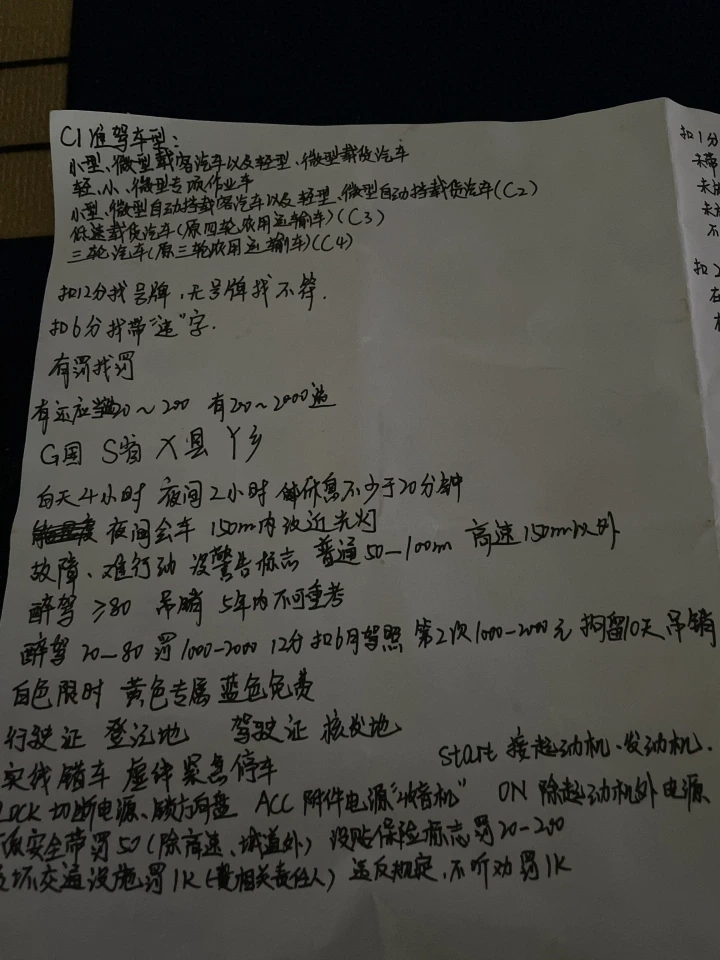 C1准驾车型:
小型、微型载客汽车以及轻型、微型载货汽车
轻、小、微型专项作业车
小型、微型自动挡载客汽车以及轻型、微型自动挡载货汽车(C2)
低速载货汽车(原四轮农用运输车)(C3)
三轮汽车(原三轮农用运输车)(C4)
扣12分找号牌,无号牌找不符.
扣6分找带"逃"字.
有罚找罚
有 应当 20~200 有200~2000选
G国 S省 X县 Y乡
白天4小时 夜间2小时 休息不少于20分钟
夜间会车 150m内改近光灯
故障、难行动 设警告标志 普通50—100m 高速150m以外
醉驾 ≥80 吊销 5年内不可重考
醉驾 20—80 罚1000-2000 12分 扣6月驾照 第2次1000-2000元 拘留10天 吊销
白色限时 黄色专属 蓝色免费
行驶证 登记地 驾驶证 核发地
实线错车 虚线紧急停车 Start 接起动机、发动机.
LOCK 切断电源、锁方向盘 ACC 附件电源"收音机" ON 除起动机外电源
安全带罚50(除高速、城道外) 没贴保险标志罚20-200
坏交通设施罚1K( 相关责任人) 违反规定,不听劝罚1K
扣1分
未带
不
扣2
在